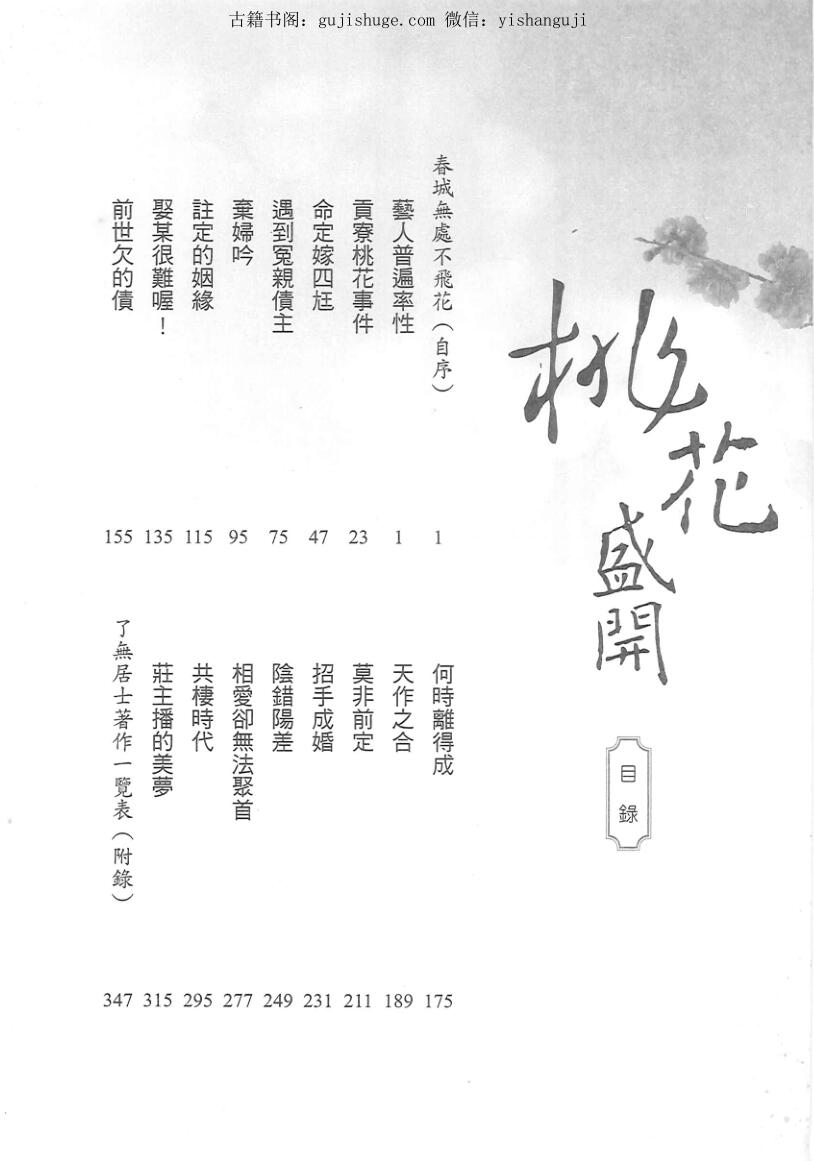 古籍书阁：gujishuge.com 微信：yishanguji
桃花盛開
目錄
春城無處不飛花（自序） 1
藝人普遍率性 1
貢寮桃花事件 23
命定嫁四尪 47
遇到冤親債主 75
棄婦吟 95
註定的姻緣 115
娶某很難喔！ 135
前世欠的債 155
何時離得成 175
天作之合 189
莫非前定 211
招手成婚 231
陰錯陽差 249
相愛卻無法聚首 277
共棲時代 295
莊主播的美夢 315
了無居士著作一覽表（附錄） 347